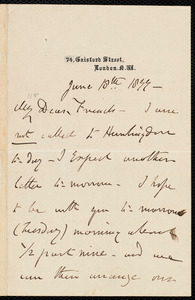 74, Gaisford Street,
London. N.W.
June 18th 1877 -
My Dear Friends - I am
not called to Huntingdon
to day - I expect another
letter to-morrow. I hope
to be with you to-morrow
(Tuesday) morning about
1/2 past nine - and we
can then arrange our